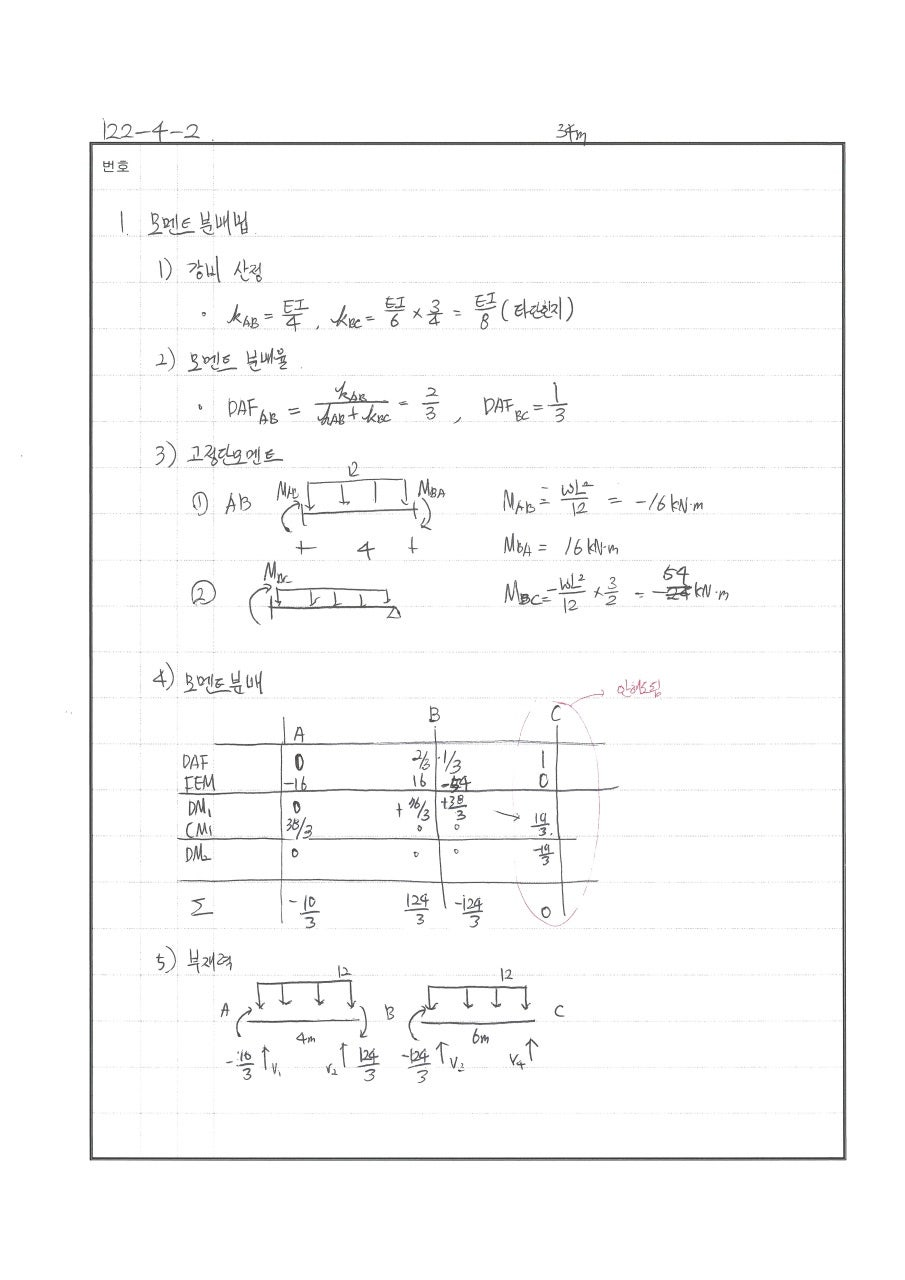 122-4-2
34m
번호
1. 모멘트 분배법
1) 강비 산정
• kAB = EI/4 , kBC = EI/6 × 3/4 = EI/8 (타단힌지)
2) 모멘트 분배율
• DAF_AB = kAB/(kAB + kBC) = 2/3 , DAF_BC = 1/3
3) 고정단모멘트
① AB
12
MAB MBA
4
MAB = - wL²/12 = -16 kN·m
MBA = 16 kN·m
②
MBC
MBC = -wL²/12 × 3/2 = -54 kN·m
4) 모멘트분배
A B C
DAF 0 2/3 1/3 1
FEM -16 16 -54 0
DM₁ 0 +76/3 +38/3
CM₁ 38/3 0 0 19/3
DM₂ 0 0 0 -19/3
Σ -10/3 124/3 -124/3 0
5) 부재력
12 12
A B C
4m 6m
-10/3 ↑V₁ V₂↑ 124/3 -124/3 ↑V₂ V₄↑